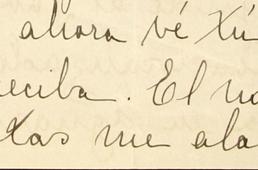 ahora vé Xú
eciba. El no
das me ala